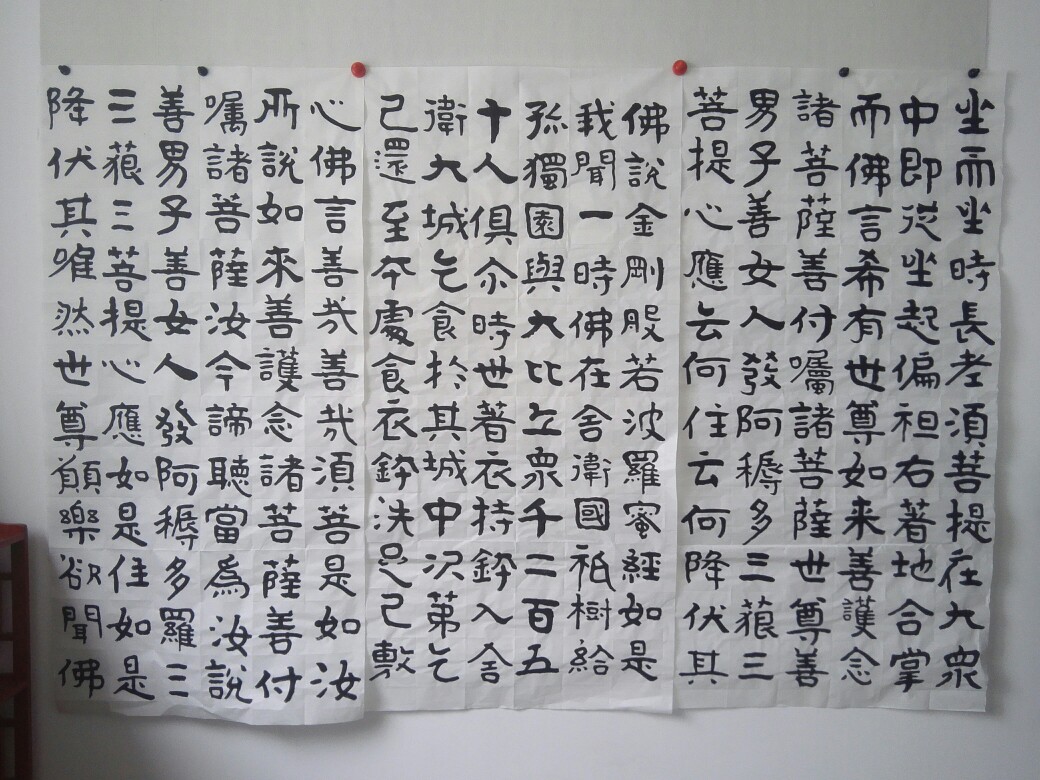 坐而坐時長老須菩提在大衆
中即從坐起偏袒右著地合掌
而佛言希有世尊如来善護念
諸菩薩善付囑諸菩薩世尊善
男子善女人發阿耨多三藐三
菩提心應云何住云何降伏其
佛說金剛般若波羅蜜經如是
我聞一時佛在舍衛國祇樹給
孤獨園與大比丘衆千二百五
十人俱尒時世著衣持鉢入舍
衛大城乞食於其城中次第乞
已還至本處食衣鉢洗足已敷
心佛言善哉善哉須菩是如汝
所說如來善護念諸菩薩善付
囑諸菩薩汝今諦聽當為汝說
善男子善女人發阿耨多羅三
三藐三菩提心應如是住如是
降伏其唯然世尊願樂欲聞佛